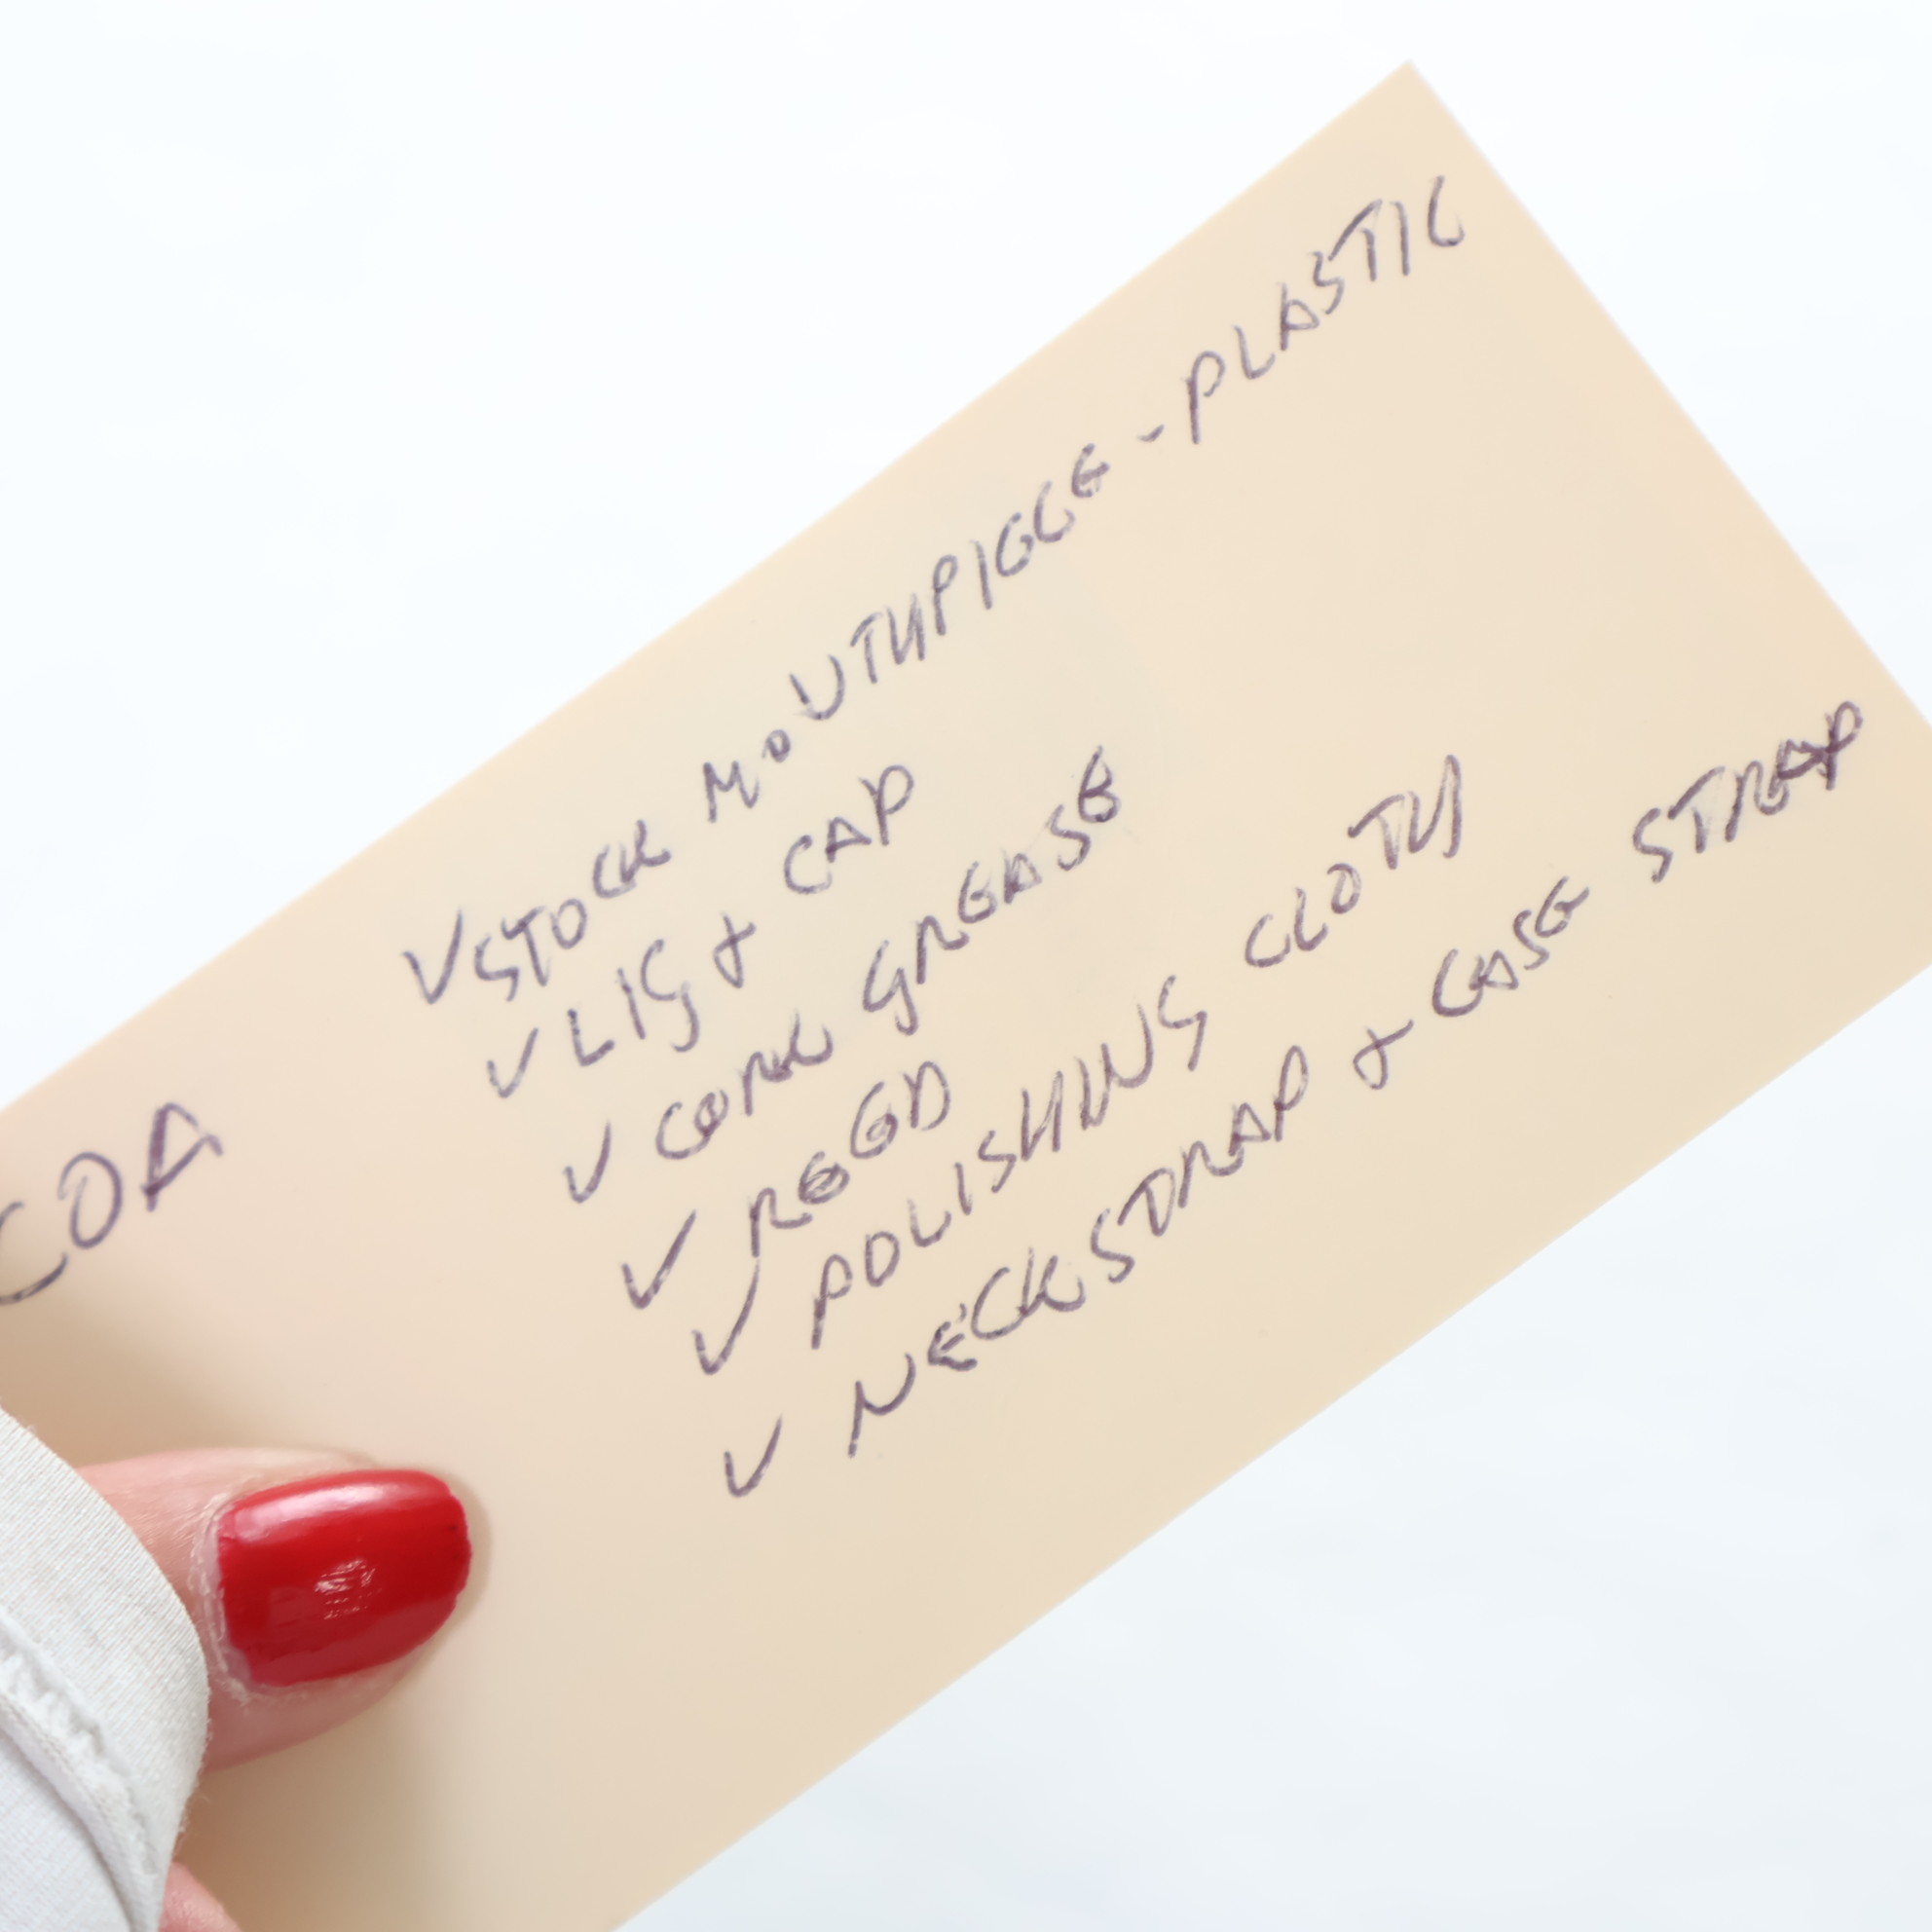 COA
✓ STOCK MOUTHPIECE - PLASTIC
✓ LIG & CAP
✓ CORK GREASE
✓ REED
✓ POLISHING CLOTH
✓ NECKSTRAP & CASE STRAP